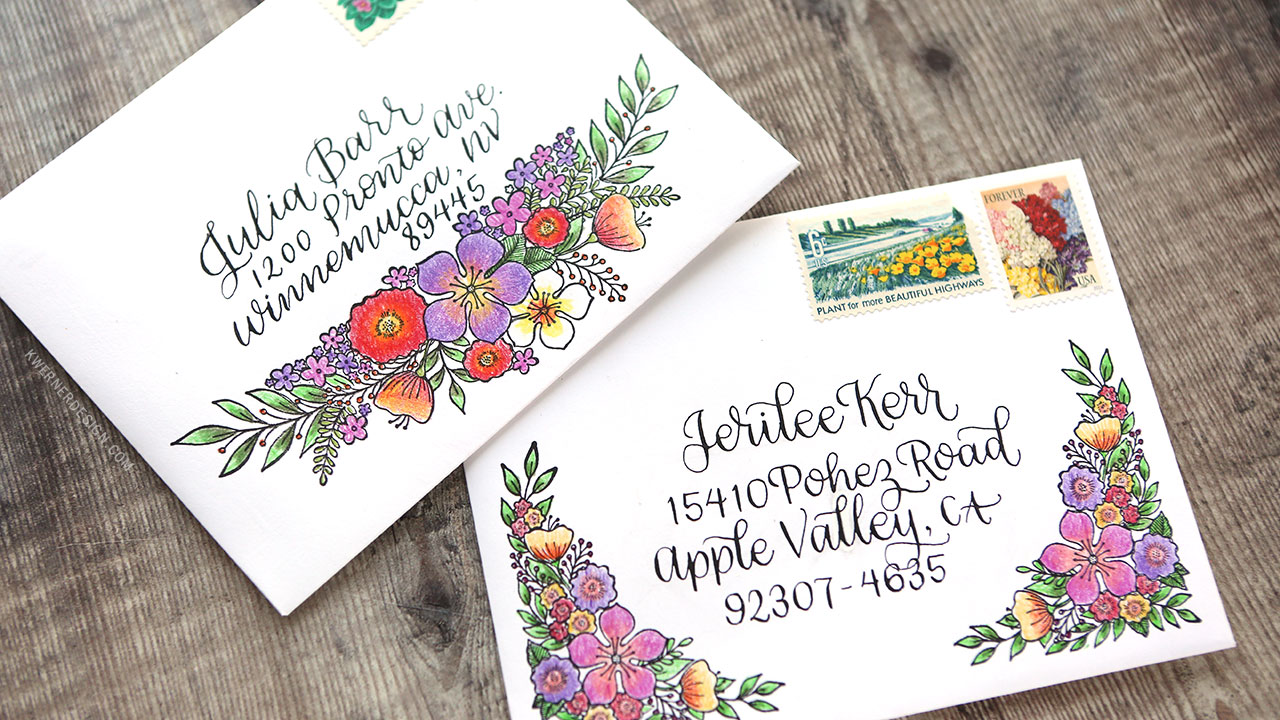 Julia Barr
1200 Pronto ave.
winnemucca, NV
89445
KWERNERDESIGN.COM
6¢
U.S.
PLANT for more BEAUTIFUL HIGHWAYS
FOREVER
USA
Jerilee Kerr
15410 Pohez Road
apple Valley, CA
92307-4635